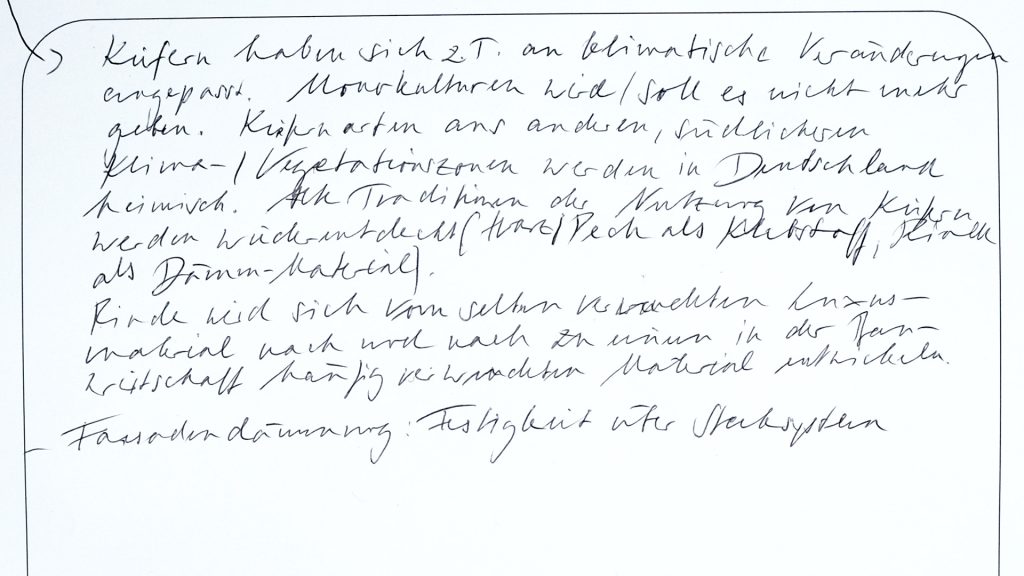 Kiefern haben sich z.T. an klimatische Veränderungen
angepasst. Monokulturen wird/soll es nicht mehr
geben. Kiefernarten aus anderen, südlicheren
Klima-/Vegetationszonen werden in Deutschland
heimisch. Alte Traditionen der Nutzung von Kiefern
werden wiederentdeckt (Harz/Pech als Klebstoff, Rinde
als Dämm-Material).
Rinde wird sich vom selten verwendeten Luxus-
material nach und nach zu einem in der Bau-
wirtschaft häufig verwendeten Material entwickeln.
Fassadendämmung: Festigkeit über Stecksystem